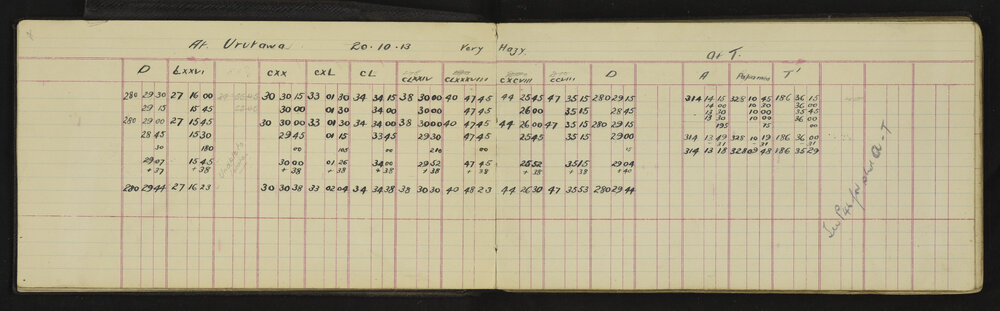 At Urutawa 20·10·13 Very Hazy. at T.
D LXXVI CXX CXL CL CLXXIV CLXXXVIII CXCVIII CCVIII D A T'
280 29 30 27 16 00 30 30 15 33 01 30 34 34 15 38 30 00 40 47 45 44 25 45 47 35 15 280 29 15 314 14 15 328 10 45 186 36 15
29 15 15 45 30 00 01 30 34 00 30 00 47 45 26 00 35 15 28 45 14 00 10 30 36 00
13 30 10 30 35 45
280 29 00 27 15 45 30 30 00 33 01 30 34 34 00 38 30 00 40 47 45 44 26 00 47 35 15 280 29 15 13 30 10 00 36 00
28 45 15 30 29 45 01 15 33 45 29 30 47 45 25 45 35 15 29 00 314 13 49 328 10 19 186 36 00
30 180 00 105 00 210 00 15 31 31 31
29 07 15 45 30 00 01 26 34 00 29 52 47 45 25 52 35 15 29 04 314 13 18 328 09 48 186 35 29
+37 +38 +38 +38 +38 +38 +38 +38 +38 +40
280 29 44 27 16 23 30 30 38 33 02 04 34 34 38 38 30 30 40 48 23 44 26 30 47 35 53 280 29 44
for a - T